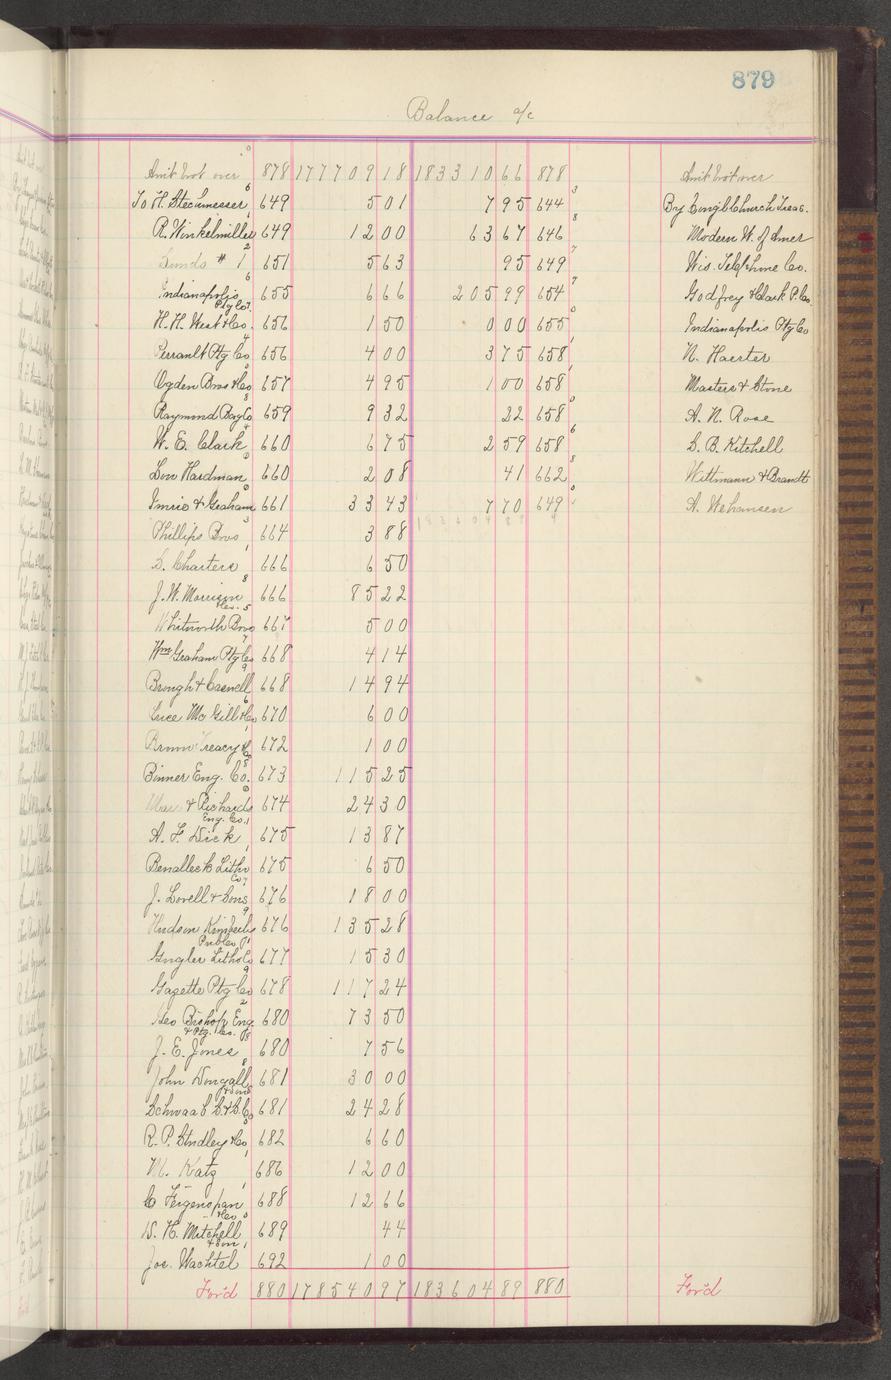 879
Balance a/c
Amt bot over 878 177709 18 183310 66 878 Amt bot over
To H. Stechmesser 649 5 01 7 95 644 By Congl Church Treas.
R. Winkelmiller 649 12 00 63 67 646 Modern W. of Amer
# 1 651 5 63 95 649 Wis. Telephone Co.
Indianapolis Ptg Co 655 6 66 205 99 654 Godfrey & Clark P. Co
H. H. West & Co. 656 1 50 0 00 655 Indianapolis Ptg Co
Perrault Ptg Co 656 4 00 3 75 658 N. Haerter
Ogden Bros & Co 657 4 95 1 00 658 Masters & Stone
Raymond Bag Co 659 9 32 22 658 A. N. Rose
W. E. Clark 660 6 75 2 59 658 S. B. Kitchell
Lon Hardman 660 2 08 41 662 Wittmann & Brandt
Imrie & Graham 661 33 43 7 70 649 A. Wehausen
Phillips Bros 664 3 88 183604 89
S. Charters 666 6 50
J. W. Morrison 666 85 22
Whitworth Bros 667 5 00
Wm Graham Ptg Co 668 4 14
Brough & Caswell 668 14 94
McGill & Co 670 6 00
Brown Treacy & Co 672 1 00
Binner Eng. Co. 673 115 25
& Richards Eng. Co. 674 24 30
A. F. Dick 675 13 87
Benalleck Litho Co 675 6 50
J. Lovell & Sons 676 18 00
Hudson Kimberly Pub Co 676 135 28
Gugler Litho Co 677 15 30
Gazette Ptg Co 678 117 24
Geo Bishop Eng & Ptg. Co. 680 73 50
J. E. Jones 680 7 56
John Dougall & Son 681 30 00
Schwaab S. & S. Co 681 24 28
R. P. Studley & Co 682 6 60
M. Katz 686 12 00
C Feigenspan & Co 688 12 66
W. H. Mitchell & Son 689 44
Jos. Wachtel 692 1 00
For'd 880 178540 97 183604 89 880 For'd